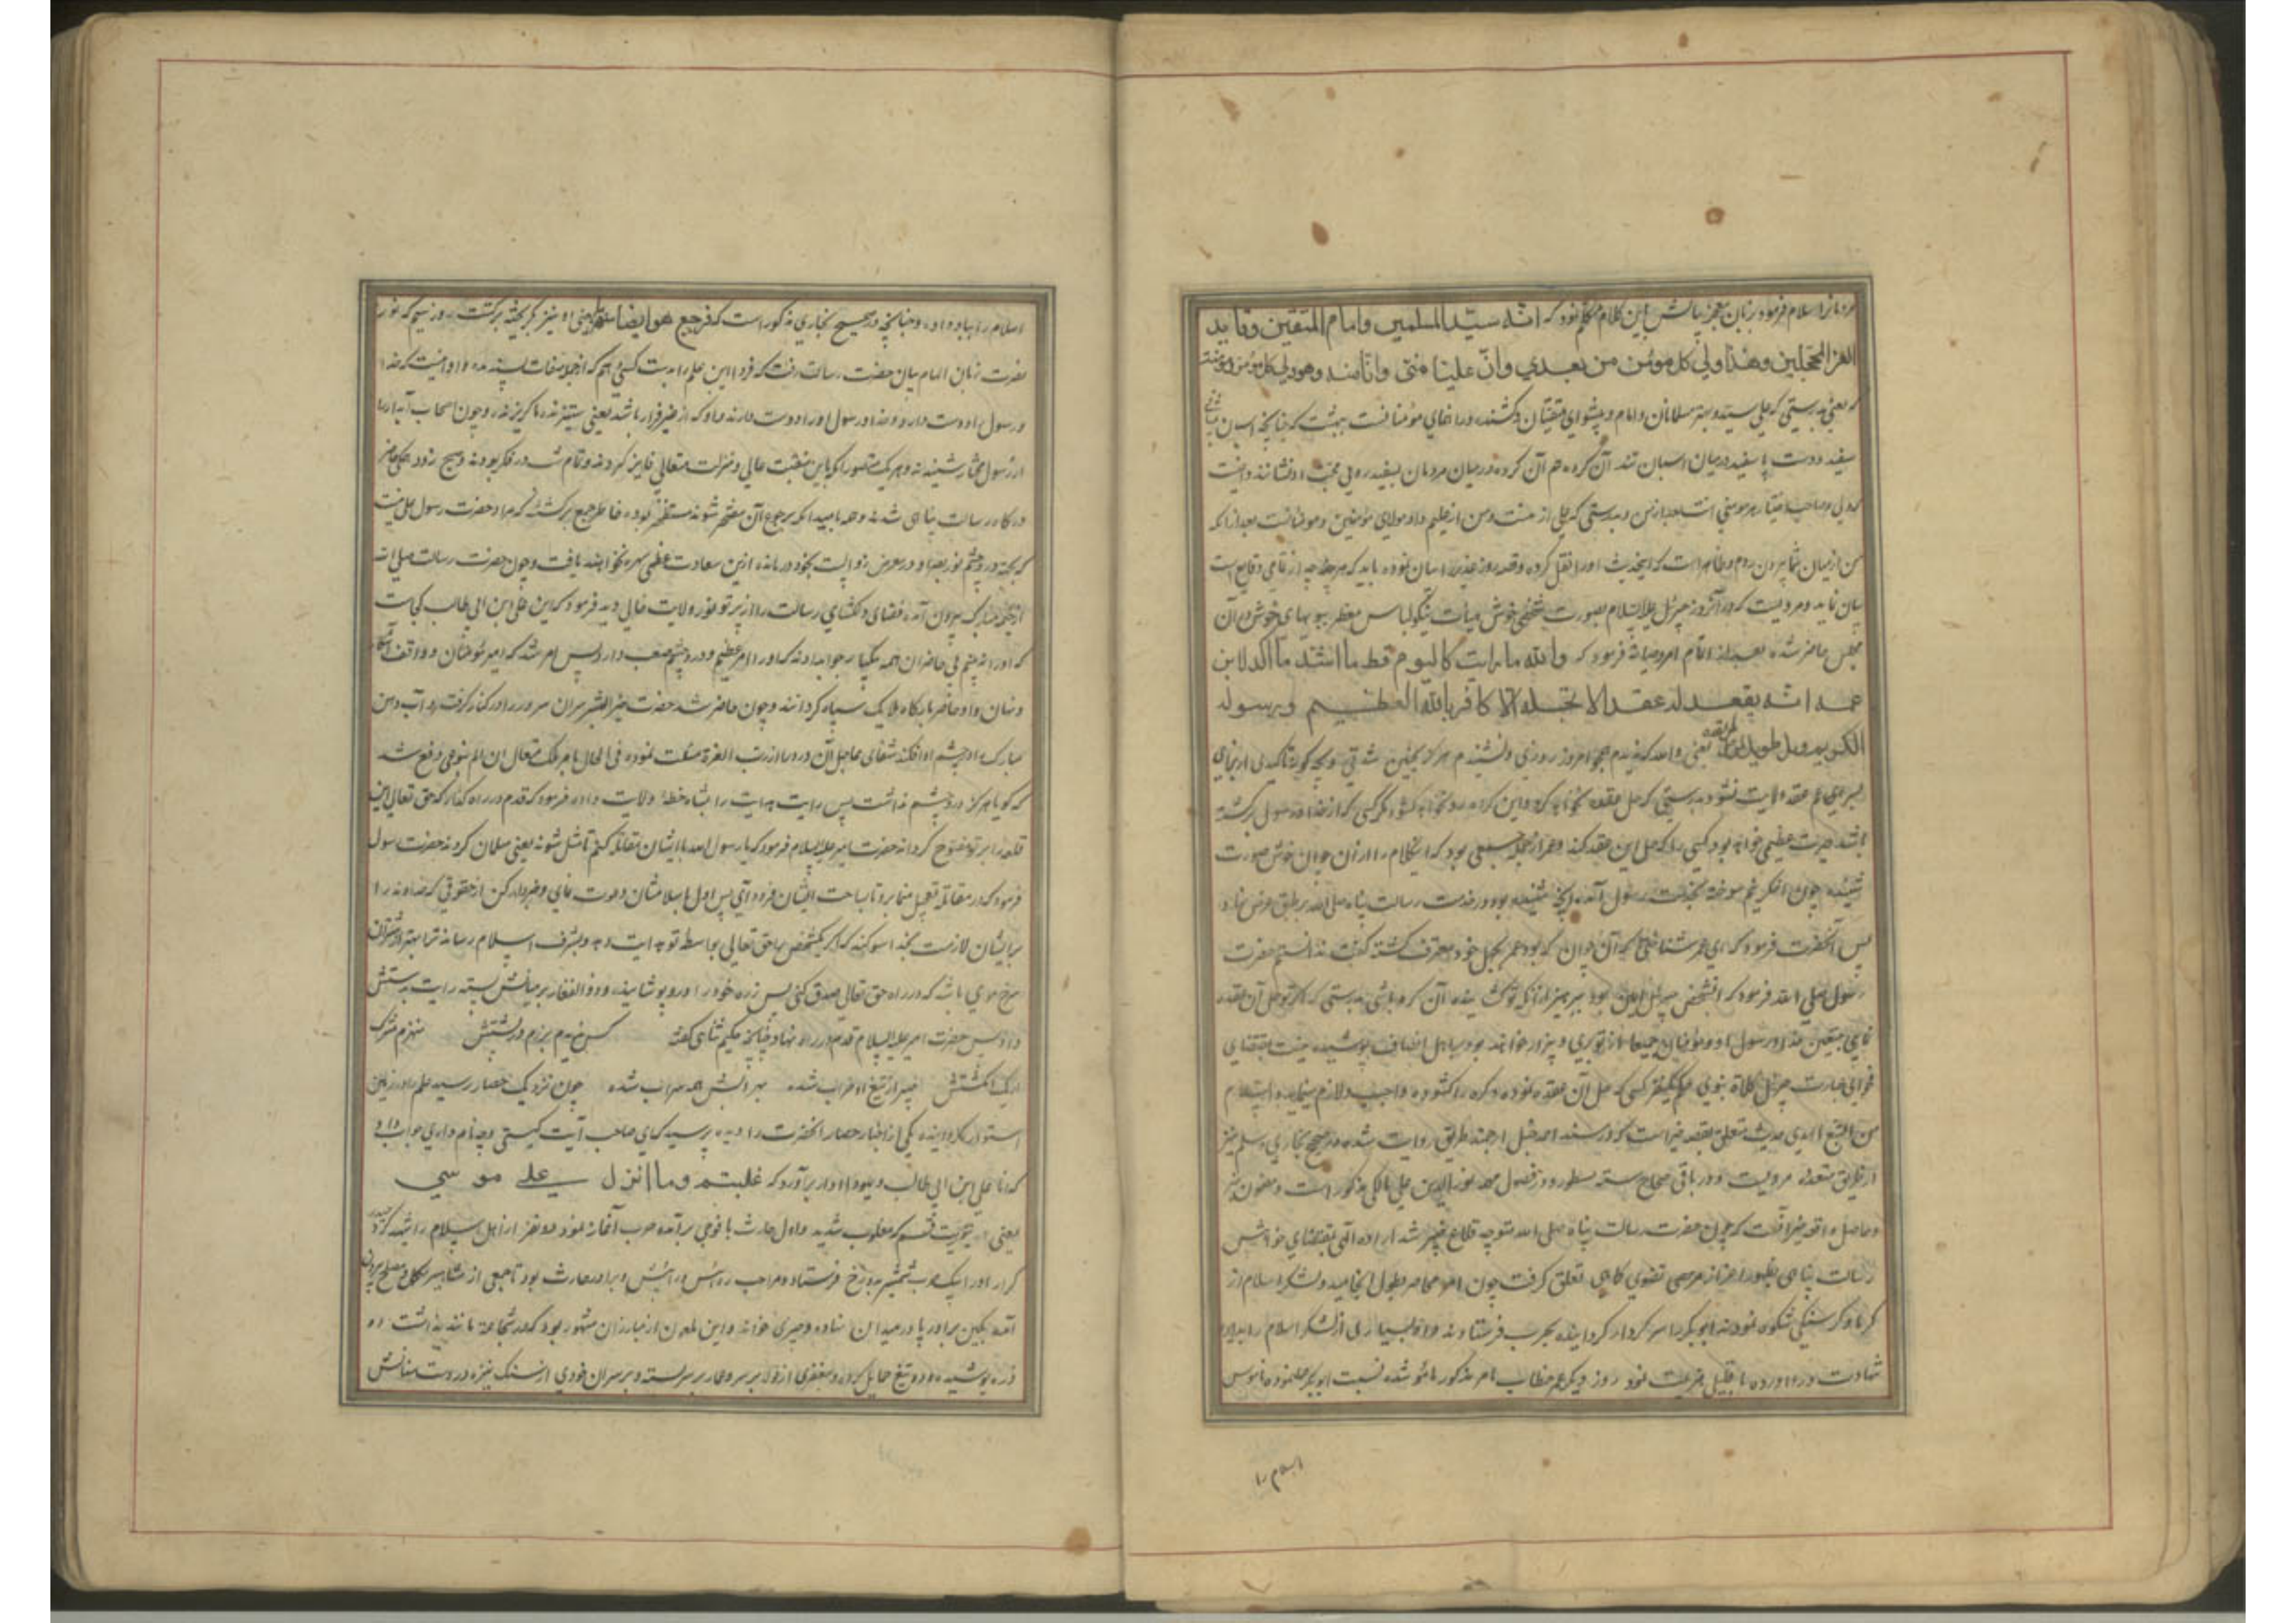 مردمانرا اسلام فرمود بزبان معجز بیانش این کلام متکلم نمود که انّه سیّد المسلمین وامام المتّقین وقاید
الغرّ المحجّلین وهذا ولیّ کلّ مؤمن من بعدی وانّ علیّا منّی وانا منه وهو ولی کل مؤمن ومؤمنة
که یعنی بدرستی که علی سید و بهتر مسلمانان وامام و پیشوای متقیان و کشنده و راهنمای مؤمنانست ببهشت که چنانچه اسبان پیشانی
سفید و دست و پا سفید درمیان اسبان تند آن گروه هم آن گروه درمیان مردمان بسفید رویی محبت او نشانند و اینست
که ولی وصاحب اختیار هر مومنی است بعد از من و بدرستی که علی از منست و من از علیم و او مولای مؤمنین و مومناتست بعد از آنکه
من از میان شما بیرون روم و ظاهر است که اینحدیث او را نقل کرده و قصه روز غدیر را بیان نموده باید که هرچه از تمامی وقایع است
بیان نماید ومرویست که در آنروز جبرئیل علیه السلام بصورت شخصی خوش هیأت نیکو لباس معطر ببویهای خوش در آن
مجلس حاضر شده بعد از اتمام امر وصایة فرمود که والله ما رایت کالیوم قط ما اشدّ ما اکّد لابن
عمه انّه یعقد له عقدا لا یحلّه الا کافر بالله العظیم وبرسوله
الکریم ویل طویل لمن حلّ عقده یعنی والله که ندیدم همچو امروز روزی ونشنیدم هرگز بچنین شدتی وبچه گونه تاکیدی از برای
پسر عمّ عقد ولایت نمود بدرستی که حل عقد نخواهد کرد و این گره را نخواهد کشود مگر کسی که از خدا و رسول برگشته
باشد حیرت عظیمی خواهد بود کسی را که حل این عقد کند و عمر از جمله جمعی بود که اینکلام را از آن جوان خوش صورت
شنیده چون اخگر غم سوخته بخدمت رسول آمد و آنچه شنیده بود در خدمت رسالت پناه صلی الله بر طبق عرض نهاد
پس آنحضرت فرمود که ای عمر شناختی که آن جوان که بود عمر بجهل خود معترف گشته گفت ندانستم حضرت
رسول صلی الله فرمود که آنشخص جبرئیل امین بود بپرهیز از آنکه تو گشاینده آن گره باشی بدرستی که اگر تو حل آن عقد
نمایی بیقین خدا و رسول او و مؤمنان جمیعا از تو بری و بیزار خواهند بود
من التتبع احادیث متعلق بقصه خیبر است که در مسند احمد حنبل از چند طریق روایت شده و در صحیح بخاری و مسلم نیز
از طریق متعدده مرویست و در باقی صحاح سته مسطور و در فصول مهمه نورالدین علی مالکی مذکور است و مضمون
وحاصل واقعه خیبر آنست که چون حضرت رسالت پناه صلی الله متوجه قلاع خیبر شد اراده الهی بمقتضای خواهش
رسالت پناهی بظهور اعزاز مرتضوی تعلق گرفت چون امر محاصره بطول انجامید و لشکر اسلام از
گرما و گرسنگی شکوه نمودند ابوبکر را سردار گردانیده بحرب فرستادند و او بسیاری از لشکر اسلام را
شهادت در آورده با قلیلی هزیمت نمود روز دیگر عمر خطاب بامر مذکور مأمور شده نسبت ابوبکر عمل نموده ناموس
اسلام را
اسلام را بباد داده و چنانچه در صحیح بخاری مذکور است که فرجع هو ایضا منهزما یعنی او نیز گریخته برگشت روز سیم که
حضرت زبان الهام بیان حضرت رسالت رفت که فردا این علم را بدست کسی دهم که از جمله صفات پسندیده او اینست که خدا
و رسول را دوست دارد و خدا و رسول او را دوست دارند و او کرار غیر فرار باشد یعنی ستیزنده نا گریزنده و چون اصحاب
از رسول مختار شنیدند و هر یک متصور آنکه باین منقبت عالی و منزلت متعالی فایز گردند و تمام شب در فکر بودند و صبح زود همگی حاضر
درگاه رسالت پناهی شدند و همه بامید آنکه برجوع آن مفتخر شوند منتظر بوده خاطر جمع گشتند که مراد حضرت رسول علی نیست
که بجهة درد چشم نور بصر او در معرض زوالست بخود درمانده ازین سعادت عظمی بهره نخواهند یافت و چون حضرت رسالت صلی الله
از خیمه مبارک بیرون آمد فضای دلگشای رسالت را از پرتو نور ولایت خالی دید فرمود که این علی ابن ابی طالب کجاست
که او را نه بینم پی حاضران همه بیکبار جواب دادند که او را المی عظیم و درد چشم صعب دارد پس امر شد که امیر مؤمنان و واقف
ونهان را حاضر بارگاه ملایک سپاه گردانند و چون حاضر شد حضرت خیر البشر سر آن سرور را در کنار گرفت و آب دهن
مبارک را در چشم او افکند شفای عاجل آن درد را از رب العزة مسئلت نموده فی الحال بامر ملک متعال آن الم بنوعی دفع شد
که گویا هرگز درد چشم نداشت پس رایت هدایت را بشاه خطه ولایت داده فرمود که قدم در راه گذار که حق تعالی این
قلعه را بر تو مفتوح گرداند حضرت امیر علیه السلام فرمود که یا رسول الله با ایشان مقاتله کنم تا مثل شوند یعنی مسلمان گردند حضرت رسول
فرمود که در مقاتله تعجیل منما برو تا بساحت ایشان فرود آی پس اول باسلامشان دعوت نمای و خبردار کن از حقوقی که خداوند را
بر ایشان لازمست بخدا سوگند که اگر یکشخص را حق تعالی بواسطه تو هدایت دهد و بشرف اسلام رساند ترا بهتر از شتران
سرخ موی باشد که در راه حق تعالی صدق کنی پس زره خود را در او پوشانیده و ذوالفقار بر میانش بسته رایت بدستش
داد پس حضرت امیر علیه السلام قدم در راه نهاد و چنانچه حکیم ثنائی گفته کس ندیدم برزم در پشتش منهزم شرک
از یک انگشتش خیبر از تیغ او خراب شده سر آلش همه سراب شده چون نزدیک حصار رسید علم را در زمین
استوار گردانیده یکی از احبار حصار آنحضرت را دیده پرسید که ای صاحب رایت کیستی و چه نام داری جواب داد
که انا علی ابن ابی طالب و یهود آواز برآورد که غلبتم وما انزل علی موسی
یعنی بتوریت قسم که مغلوب شدید و اول حارث با فوجی برآمده حرب آغاز نمود و دو نفر از اهل اسلام را شهید کرد حیدر
کرار او را بیک ضرب شمشیر بدوزخ فرستاد و مرحب رئیس و برادر حارث بود با جمعی از مشاهیر مکمل و مسلح بیرون
آمده بکین برادر پا در میدان نهاده و خیبری خوانده و این ملعون از مبارزان مشهور بود که در شجاعة مانند نداشت دو
زره پوشیده و دو تیغ حمایل کرده و مغفری از فولاد بر سر و عمامه بر سر بسته و بر سر آن خودی از سنگ نیزه در دست سنانش